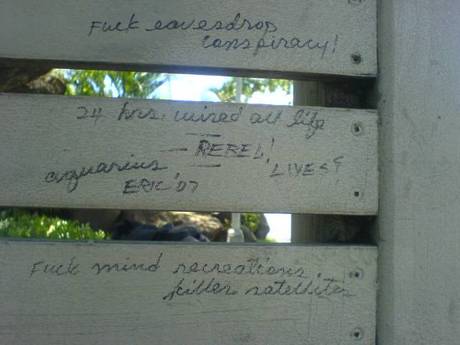 Fuck eavesdrop
conspiracy!
24 hrs. wired all life
REBEL!
aquarius LIVES!
ERIC '07
Fuck mind recreations.
killer satellites